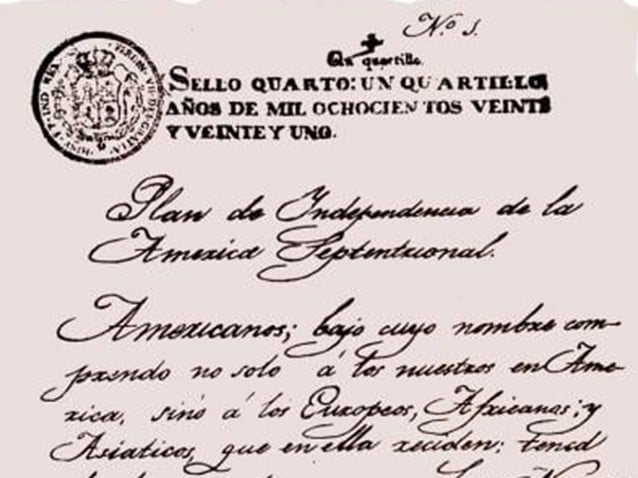 N.º 1.
Un quartillo.
SELLO QUARTO: UN QUARTILLO,
AÑOS DE MIL OCHOCIENTOS VEINTE
Y VEINTE Y UNO.
Plan de Independencia de la
America Septentrional.
Americanos; bajo cuyo nombre com-
prendo no solo á los nuestros en Ame-
rica, sinó á los Européos, Africanos; y
Asiaticos, que en ella reciden: tened